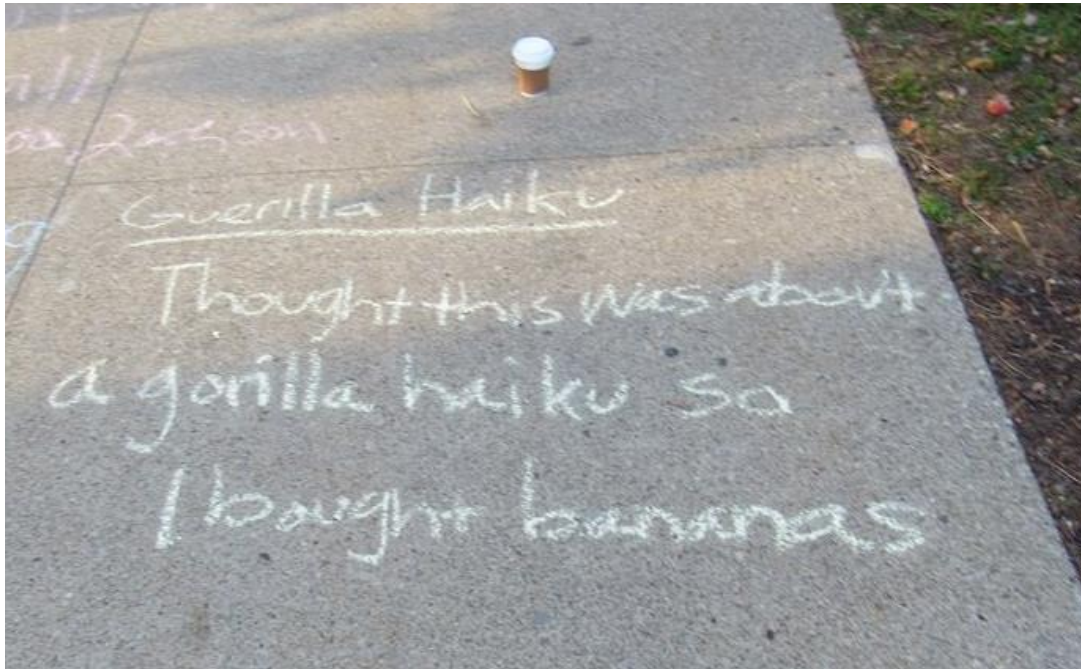 Guerilla Haiku
Thought this was about
a gorilla haiku so
I bought bananas